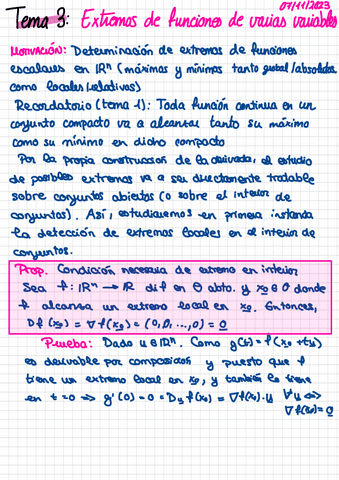 07/11/2023
Tema 3: Extremos de funciones de varias variables
MOTIVACIÓN: Determinación de extremos de funciones
escalares en ℝⁿ (máximos y mínimos tanto global/absolutos
como locales/relativos)
Recordatorio (tema 1): Toda función continua en un
conjunto compacto va a alcanzar tanto su máximo
como su mínimo en dicho compacto
Por la propia construcción de la derivada, el estudio
de posibles extremos va a ser directamente tratable
sobre conjuntos abiertos (o sobre el interior de
conjuntos). Así, estudiaremos en primera instancia
la detección de extremos locales en el interior de
conjuntos.
Prop. Condición necesaria de extremo en interior
Sea f: ℝⁿ → ℝ dif en Θ abto. y x₀ ∈ Θ donde
f alcanza un extremo local en x₀. Entonces,
Df(x₀) = ∇f(x₀) = (0,0,...,0) = 0
Prueba: Dado u ∈ ℝⁿ. Como g(t) = f(x₀ + tu)
es derivable por composición y puesto que f
tiene un extremo local en x₀, y también lo tiene
en t = 0 ⇒ g'(0) = 0 = Dᵤf(x₀) = ∇f(x₀)·u ∀u ⇔
∇f(x₀) = 0